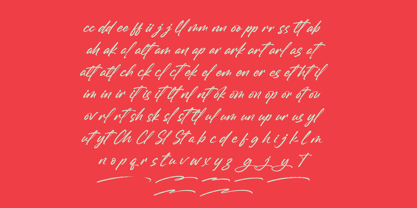 cc dd ee ff ii j j ll mm nn oo pp rr ss tt ab
ah ak al alt am an ap ar ark art arl as at
att att ch ck cl ct ek el em en er es et ht il
im in ir it is it tt rl nt ok om on op or ot ou
ov rl rt sh sk sl st ttl ul um un up ur us yl
ut yt Ch Cl Sl St a b c d e f g h i j k l m
n o p q r s t u v w x y z g j y T